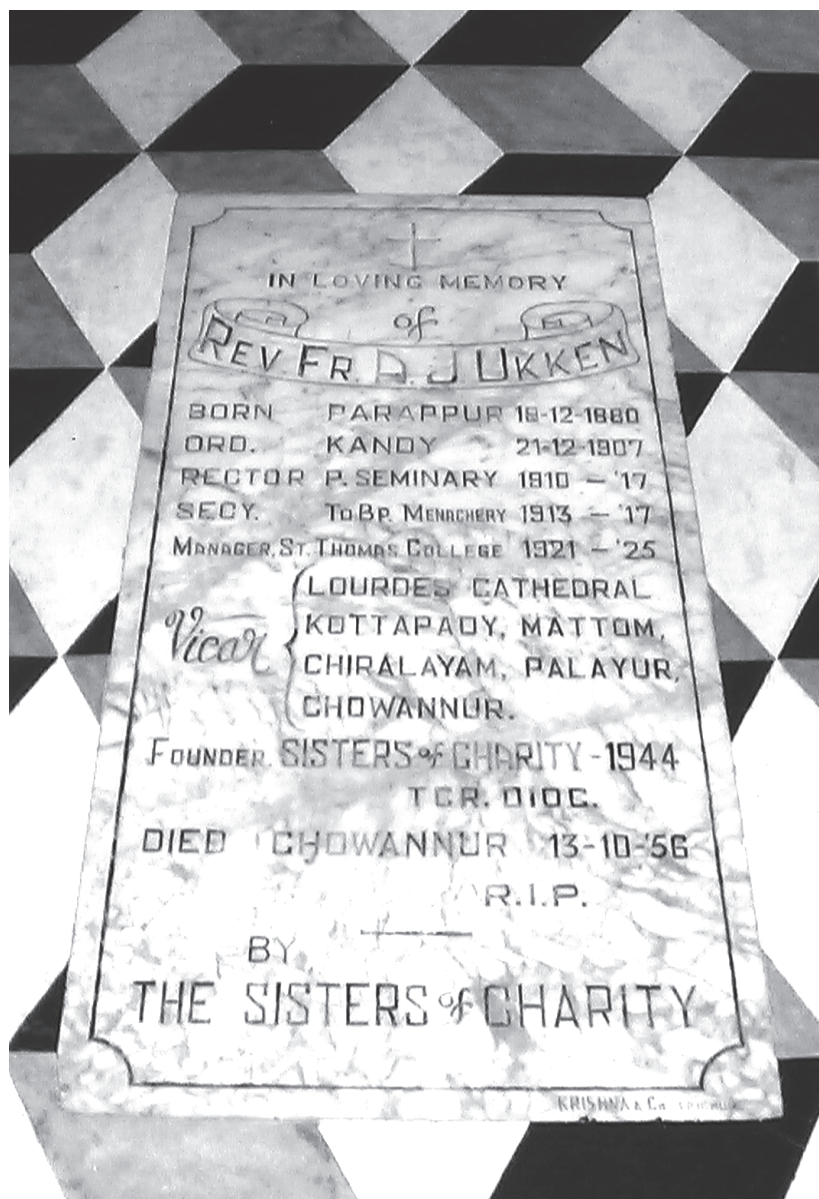 IN LOVING MEMORY
of
REV FR. A. J UKKEN
BORN PARAPPUR 18-12-1880
ORD. KANDY 21-12-1907
RECTOR P. SEMINARY 1910 – '17
SECY. TO BP. MENACHERY 1913 – '17
MANAGER, ST. THOMAS COLLEGE 1921 – '25
Vicar { LOURDES CATHEDRAL
KOTTAPADY, MATTOM,
CHIRALAYAM, PALAYUR,
CHOWANNUR.
FOUNDER. SISTERS of CHARITY - 1944
TCR. DIOC.
DIED CHOWANNUR 13-10-'56
R.I.P.
BY
THE SISTERS of CHARITY
KRISHNA & Co